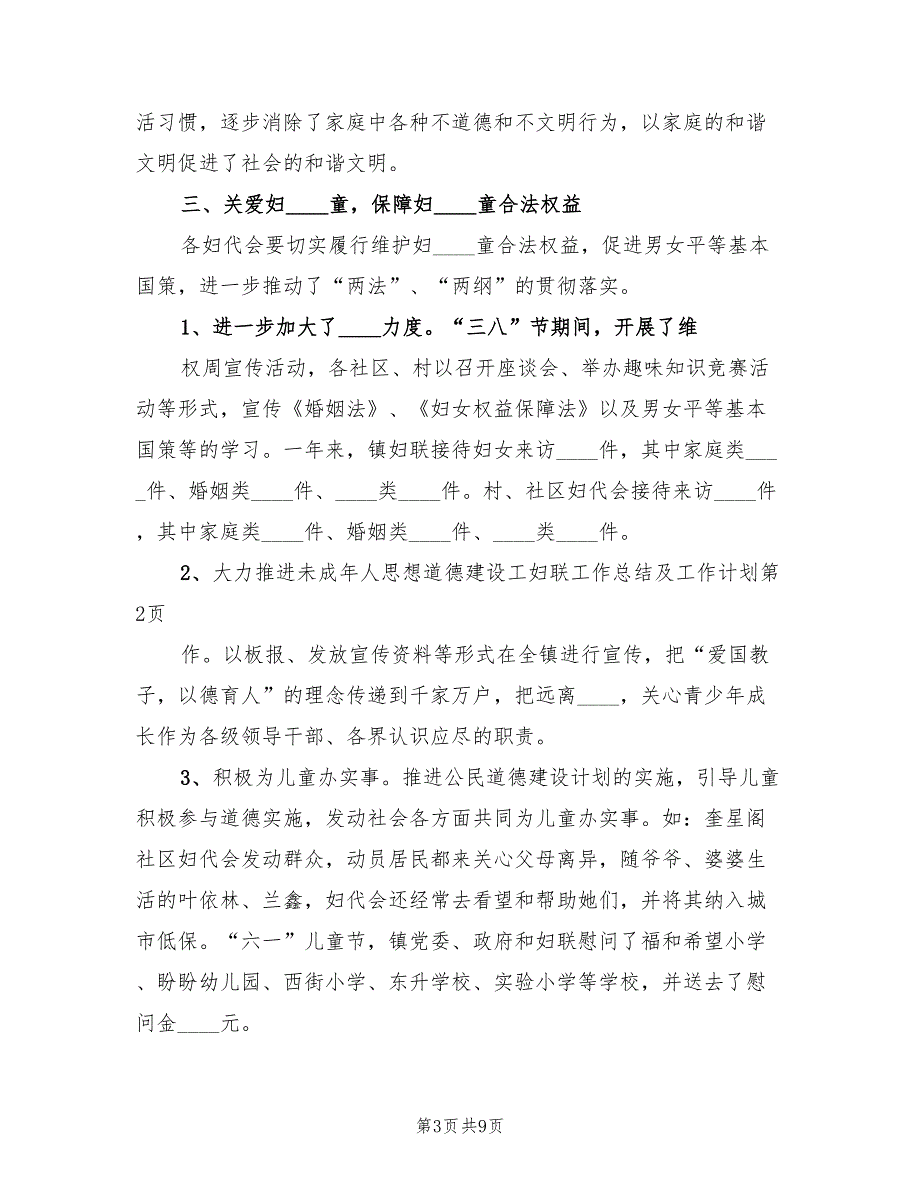 活习惯，逐步消除了家庭中各种不道德和不文明行为，以家庭的和谐
文明促进了社会的和谐文明。
三、关爱妇____童，保障妇____童合法权益
各妇代会要切实履行维护妇____童合法权益，促进男女平等基本
国策，进一步推动了“两法”、“两纲”的贯彻落实。
1、进一步加大了____力度。“三八”节期间，开展了维
权周宣传活动，各社区、村以召开座谈会、举办趣味知识竞赛活
动等形式，宣传《婚姻法》、《妇女权益保障法》以及男女平等基本
国策等的学习。一年来，镇妇联接待妇女来访____件，其中家庭类___
_件、婚姻类____件、____类____件。村、社区妇代会接待来访____件
，其中家庭类____件、婚姻类____件、____类____件。
2、大力推进未成年人思想道德建设工妇联工作总结及工作计划第
2页
作。以板报、发放宣传资料等形式在全镇进行宣传，把“爱国教
子，以德育人”的理念传递到千家万户，把远离____，关心青少年成
长作为各级领导干部、各界认识应尽的职责。
3、积极为儿童办实事。推进公民道德建设计划的实施，引导儿童
积极参与道德实施，发动社会各方面共同为儿童办实事。如：奎星阁
社区妇代会发动群众，动员居民都来关心父母离异，随爷爷、婆婆生
活的叶依林、兰鑫，妇代会还经常去看望和帮助她们，并将其纳入城
市低保。“六一”儿童节，镇党委、政府和妇联慰问了福和希望小学
、盼盼幼儿园、西街小学、东升学校、实验小学等学校，并送去了慰
问金____元。
第3页 共9页